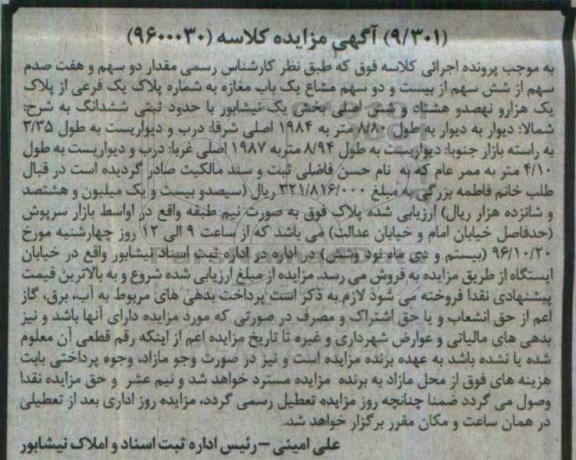 (۹/۳۰۱) آگهی مزایده کلاسه (۹۶۰۰۰۳۰)
به موجب پرونده اجرائی کلاسه فوق که طبق نظر کارشناس رسمی مقدار دو سهم و هفت صدم
سهم از شش سهم از بیست و دو سهم مشاع یک باب مغازه به شماره پلاک یک فرعی از پلاک
یک هزارو نهصدو هشتاد و شش اصلی بخش یک نیشابور با حدود ثبتی ششدانگ به شرح:
شمالا: دیوار به دیوار به طول ۸/۸۰ متر به ۱۹۸۴ اصلی شرقا: درب و دیواریست به طول ۳/۳۵
به راسته بازار جنوبا: دیواریست به طول ۸/۹۴ متربه ۱۹۸۷ اصلی غربا: درب و دیواریست به طول
۴/۱۰ متر به ممر عام که به نام حسن فاضلی ثبت و سند مالکیت صادر گردیده است در قبال
طلب خانم فاطمه بزرگی به مبلغ ۳۲۱/۸۱۶/۰۰۰ ریال (سیصدو بیست و یک میلیون و هشتصد
و شانزده هزار ریال) ارزیابی شده پلاک فوق به صورت نیم طبقه واقع در اواسط بازار سرپوش
(حدفاصل خیابان امام و خیابان عدالت) می باشد که از ساعت ۹ الی ۱۲ روز چهارشنبه مورخ
۹۶/۱۰/۲۰ (بیستم و دی ماه نود وشش) در اداره در اداره ثبت اسناد نیشابور واقع در خیابان
ایستگاه از طریق مزایده به فروش می رسد. مزایده از مبلغ ارزیابی شده شروع و به بالاترین قیمت
پیشنهادی نقدا فروخته می شود لازم به ذکر است پرداخت بدهی های مربوط به آب، برق، گاز
اعم از حق انشعاب و یا حق اشتراک و مصرف در صورتی که مورد مزایده دارای آنها باشد و نیز
بدهی های مالیاتی و عوارض شهرداری و غیره تا تاریخ مزایده اعم از اینکه رقم قطعی آن معلوم
شده یا نشده باشد به عهده برنده مزایده است و نیز در صورت وجو مازاد، وجوه پرداختی بابت
هزینه های فوق از محل مازاد به برنده مزایده مسترد خواهد شد و نیم عشر و حق مزایده نقدا
وصول می گردد ضمنا چنانچه روز مزایده تعطیل رسمی گردد، مزایده روز اداری بعد از تعطیلی
در همان ساعت و مکان مقرر برگزار خواهد شد.
علی امینی – رئیس اداره ثبت اسناد و املاک نیشابور